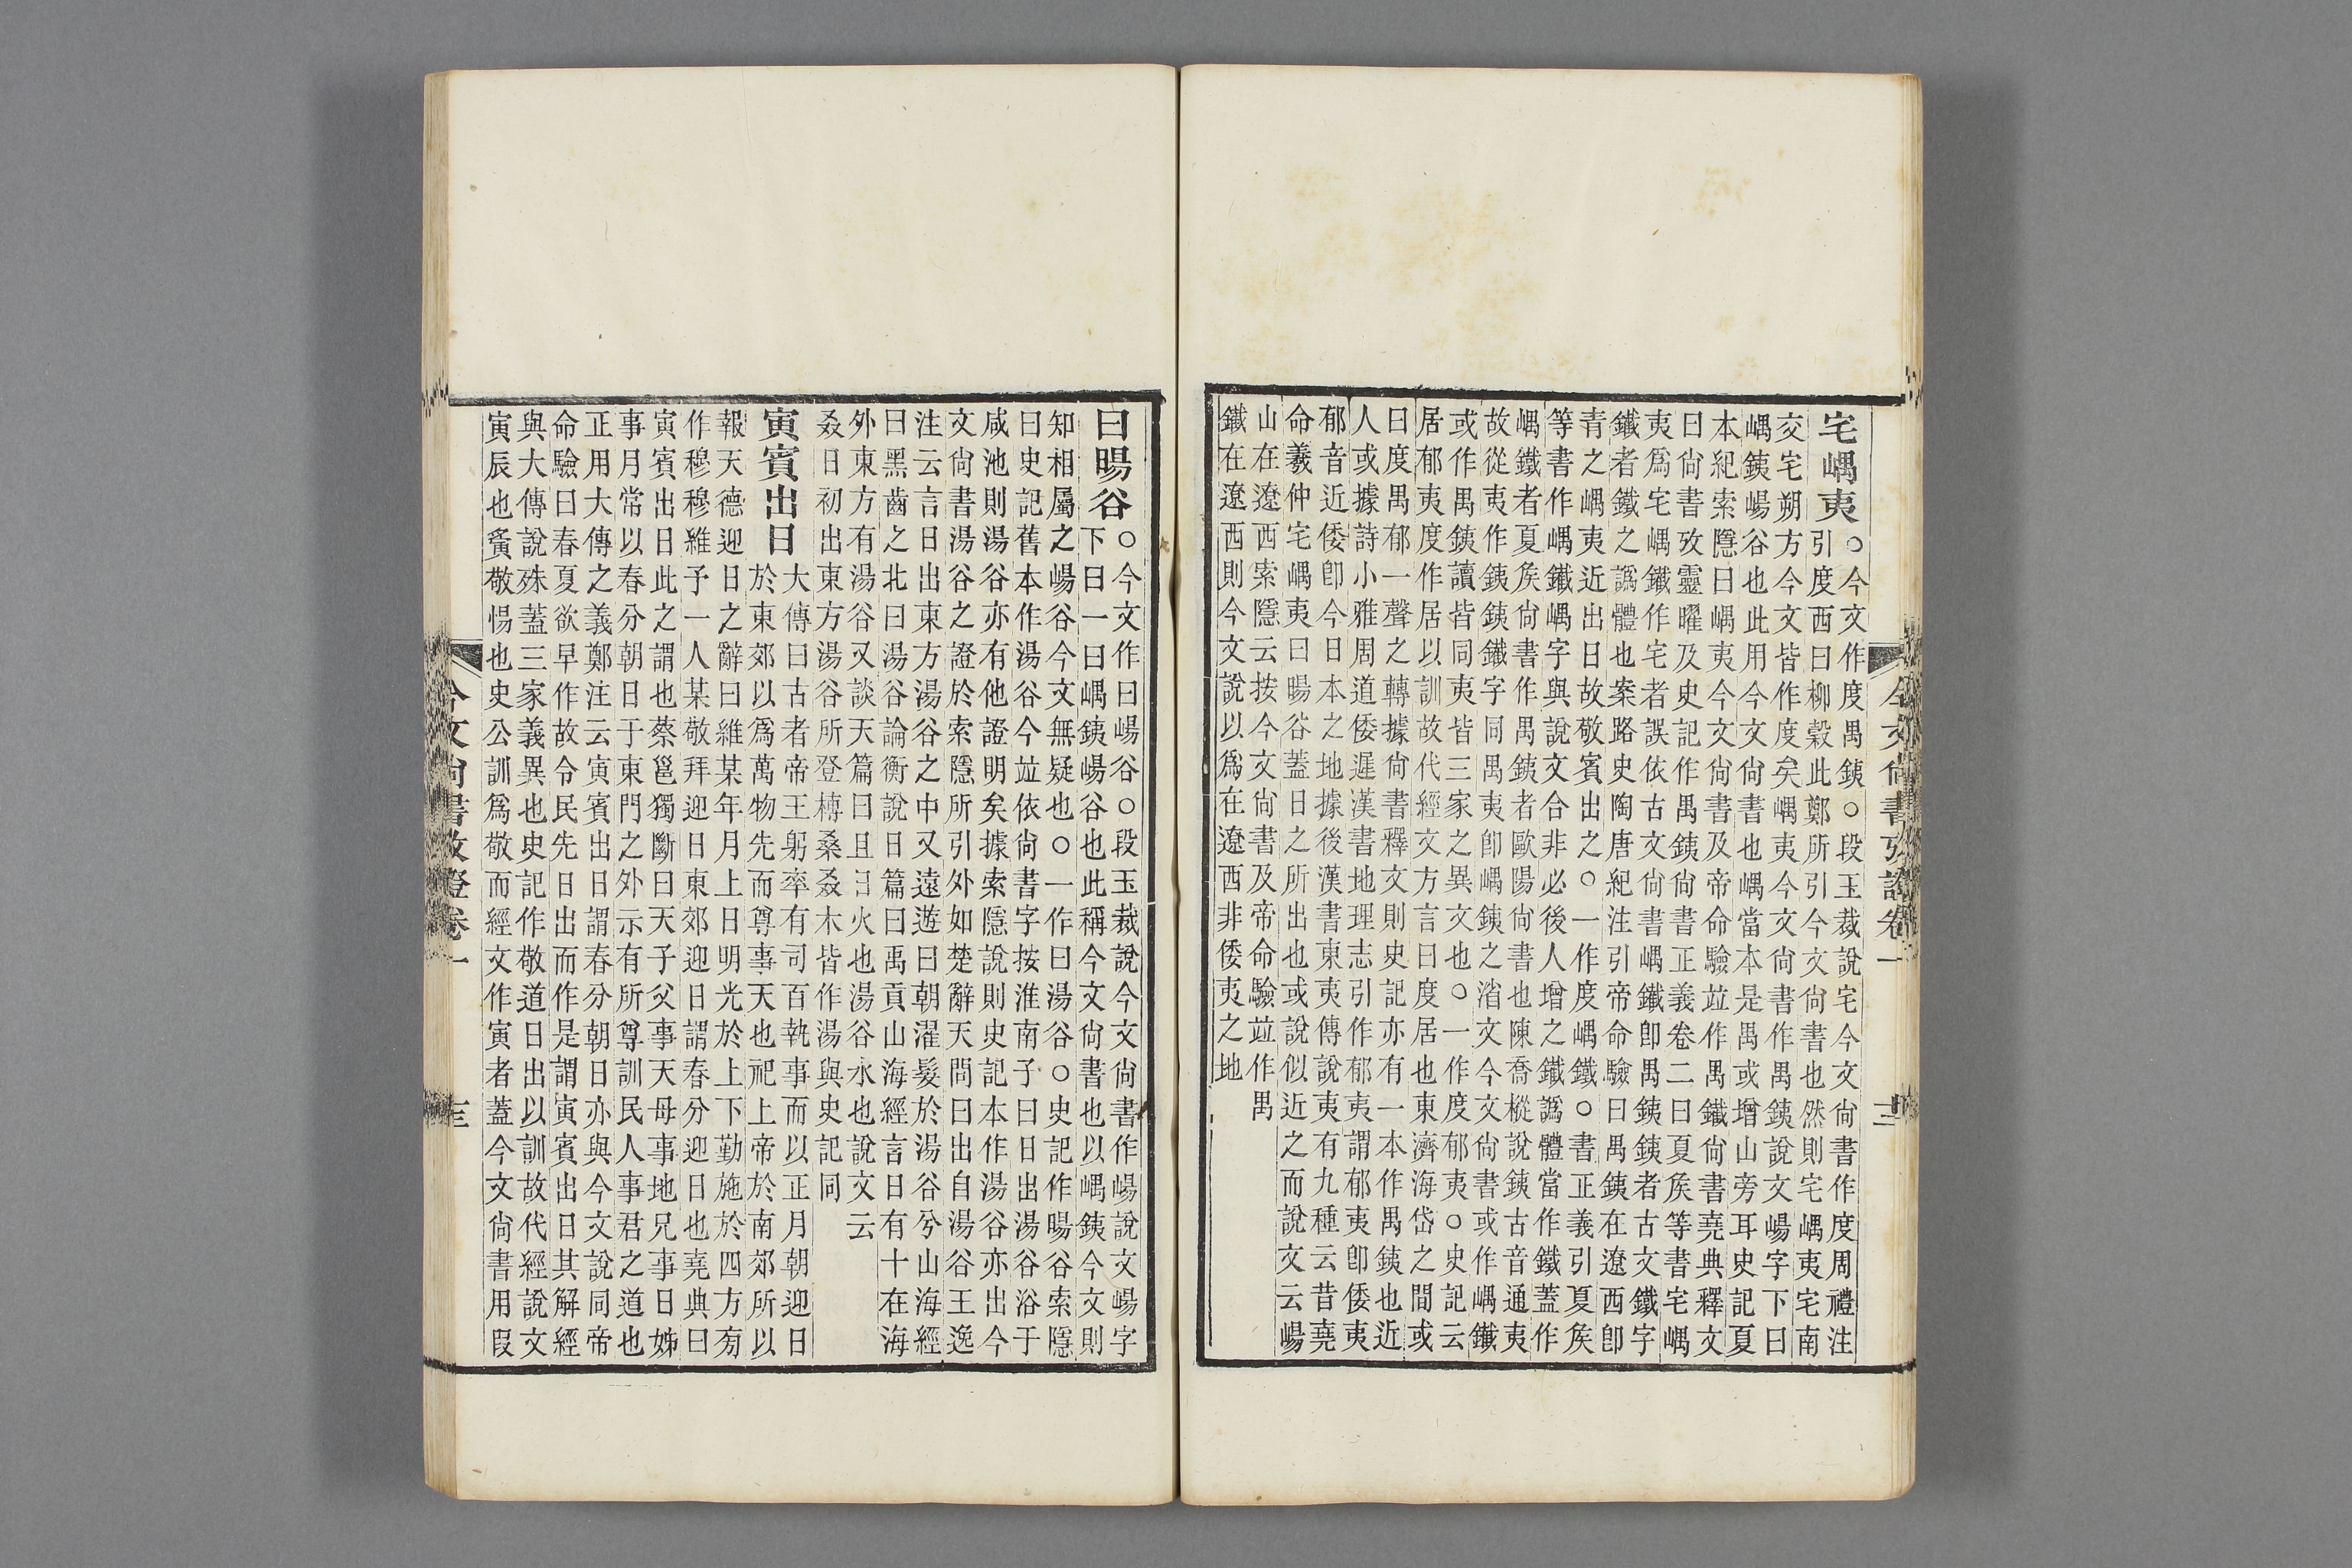 今文尚書攷證卷一
十二
宅嵎夷
○今文作度禺銕○段玉裁說宅今文尚書作度周禮注
引度西曰柳穀此鄭所引今文尚書也然則宅嵎夷宅南
交宅朔方今文皆作度矣嵎夷今文尚書作禺銕說文崵字下曰
嵎銕崵谷也此用今文尚書也嵎當本是禺或增山旁耳史記夏
本紀索隱曰嵎夷今文尚書及帝命驗竝作禺鐵尚書堯典釋文
曰尚書攷靈曜及史記作禺銕尚書正義卷二曰夏矦等書宅嵎
夷爲宅嵎鐵作宅者誤依古文尚書嵎鐵卽禺銕銕者古文鐵字
鐵者鐵之譌體也案路史陶唐紀注引帝命驗曰禺銕在遼西卽
青之嵎夷近出日故敬賓出之○一作度嵎鐵○書正義引夏矦
等書作嵎鐵嵎字與說文合非必後人增之鐵譌體當作鐵蓋作
嵎鐵者夏矦尚書作禺銕者歐陽尚書也陳喬樅說銕古音通夷
故從夷作銕銕鐵字同禺夷卽嵎銕之渻文今文尚書或作嵎鐵
或作禺銕讀皆同夷皆三家之異文也○一作度郁夷○史記云
居郁夷度作居以訓故代經文方言曰度居也東濟海岱之間或
曰度禺郁一聲之轉據尚書釋文則史記亦有一本作禺銕也近
人或據詩小雅周道倭遲漢書地理志引作郁夷謂郁夷卽倭夷
郁音近倭卽今日本之地據後漢書東夷傳說夷有九種云昔堯
命羲仲宅嵎夷曰暘谷蓋日之所出也或說似近之而說文云崵
山在遼西索隱云按今文尚書及帝命驗竝作禺
鐵在遼西則今文說以爲在遼西非倭夷之地
曰暘谷
○今文作曰崵谷○段玉裁說今文尚書作崵說文崵字
下曰一曰嵎銕崵谷也此稱今文尚書也以嵎銕今文則
知相屬之崵谷今文無疑也○一作曰湯谷○史記作暘谷索隱
曰史記舊本作湯谷今竝依尚書字按淮南子曰日出湯谷浴于
咸池則湯谷亦有他證明矣據索隱說則史記本作湯谷亦出今
文尚書湯谷之證於索隱所引外如楚辭天問曰出自湯谷王逸
注云言日出東方湯谷之中又遠遊曰朝濯髮於湯谷兮山海經
曰黑齒之北曰湯谷論衡說日篇曰禹貢山海經言日有十在海
外東方有湯谷又談天篇曰且日火也湯谷水也說文云
叒日初出東方湯谷所登榑桑叒木皆作湯與史記同
寅賓出日
大傳曰古者帝王躬率有司百執事而以正月朝迎日
於東郊以爲萬物先而尊事天也祀上帝於南郊所以
報天德迎日之辭曰維某年月上日明光於上下勤施於四方旁
作穆穆維予一人某敬拜迎日東郊迎日謂春分迎日也堯典曰
寅賓出日此之謂也蔡邕獨斷曰天子父事天母事地兄事日姊
事月常以春分朝日于東門之外示有所尊訓民人事君之道也
正用大傳之義鄭注云寅賓出日謂春分朝日亦與今文說同帝
命驗曰春夏欲早作故令民先日出而作是謂寅賓出日其解經
與大傳說殊蓋三家義異也史記作敬道日出以訓故代經說文
寅辰也夤敬惕也史公訓爲敬而經文作寅者蓋今文尚書用叚
今文尚書攷證卷一